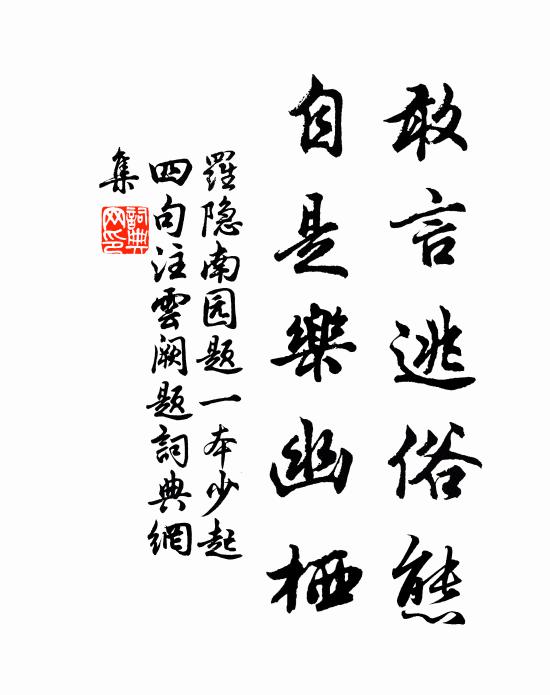 敢言逃俗態
自是樂幽栖
羅隐南园题一本少起
四句注雲阙题詞典網
集
詞典
网印